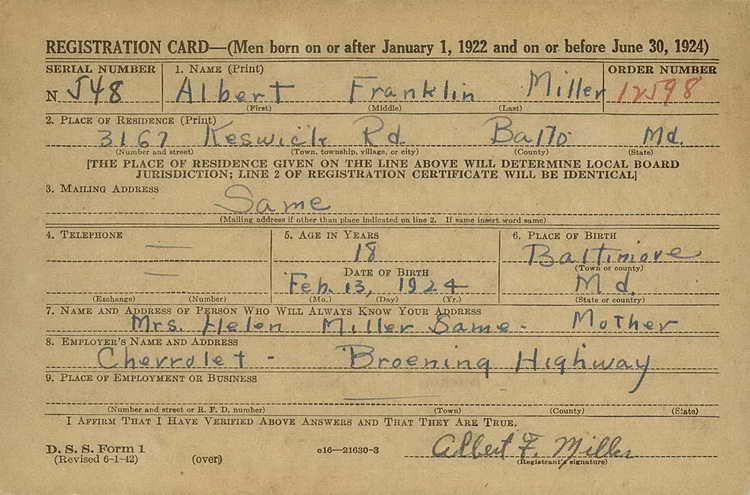 REGISTRATION CARD—(Men born on or after January 1, 1922 and on or before June 30, 1924)
SERIAL NUMBER 1. NAME (Print) ORDER NUMBER
N 548 Albert Franklin Miller 12598
(First) (Middle) (Last)
2. PLACE OF RESIDENCE (Print)
3167 Keswick Rd. Balto Md.
(Number and street) (Town, township, village, or city) (County) (State)
[THE PLACE OF RESIDENCE GIVEN ON THE LINE ABOVE WILL DETERMINE LOCAL BOARD
JURISDICTION; LINE 2 OF REGISTRATION CERTIFICATE WILL BE IDENTICAL]
3. MAILING ADDRESS
Same
(Mailing address if other than place indicated on line 2. If same insert word same)
4. TELEPHONE 5. AGE IN YEARS 6. PLACE OF BIRTH
— 18 Baltimore
(Town or county)
— DATE OF BIRTH
Feb. 13, 1924 Md.
(Exchange) (Number) (Mo.) (Day) (Yr.) (State or country)
7. NAME AND ADDRESS OF PERSON WHO WILL ALWAYS KNOW YOUR ADDRESS
Mrs. Helen Miller Same - Mother
8. EMPLOYER'S NAME AND ADDRESS
Chevrolet - Broening Highway
9. PLACE OF EMPLOYMENT OR BUSINESS
—
(Number and street or R. F. D. number) (Town) (County) (State)
I AFFIRM THAT I HAVE VERIFIED ABOVE ANSWERS AND THAT THEY ARE TRUE.
D. S. S. Form 1
(Revised 6-1-42) (over) c16—21630-3 Albert F. Miller
(Registrant's signature)